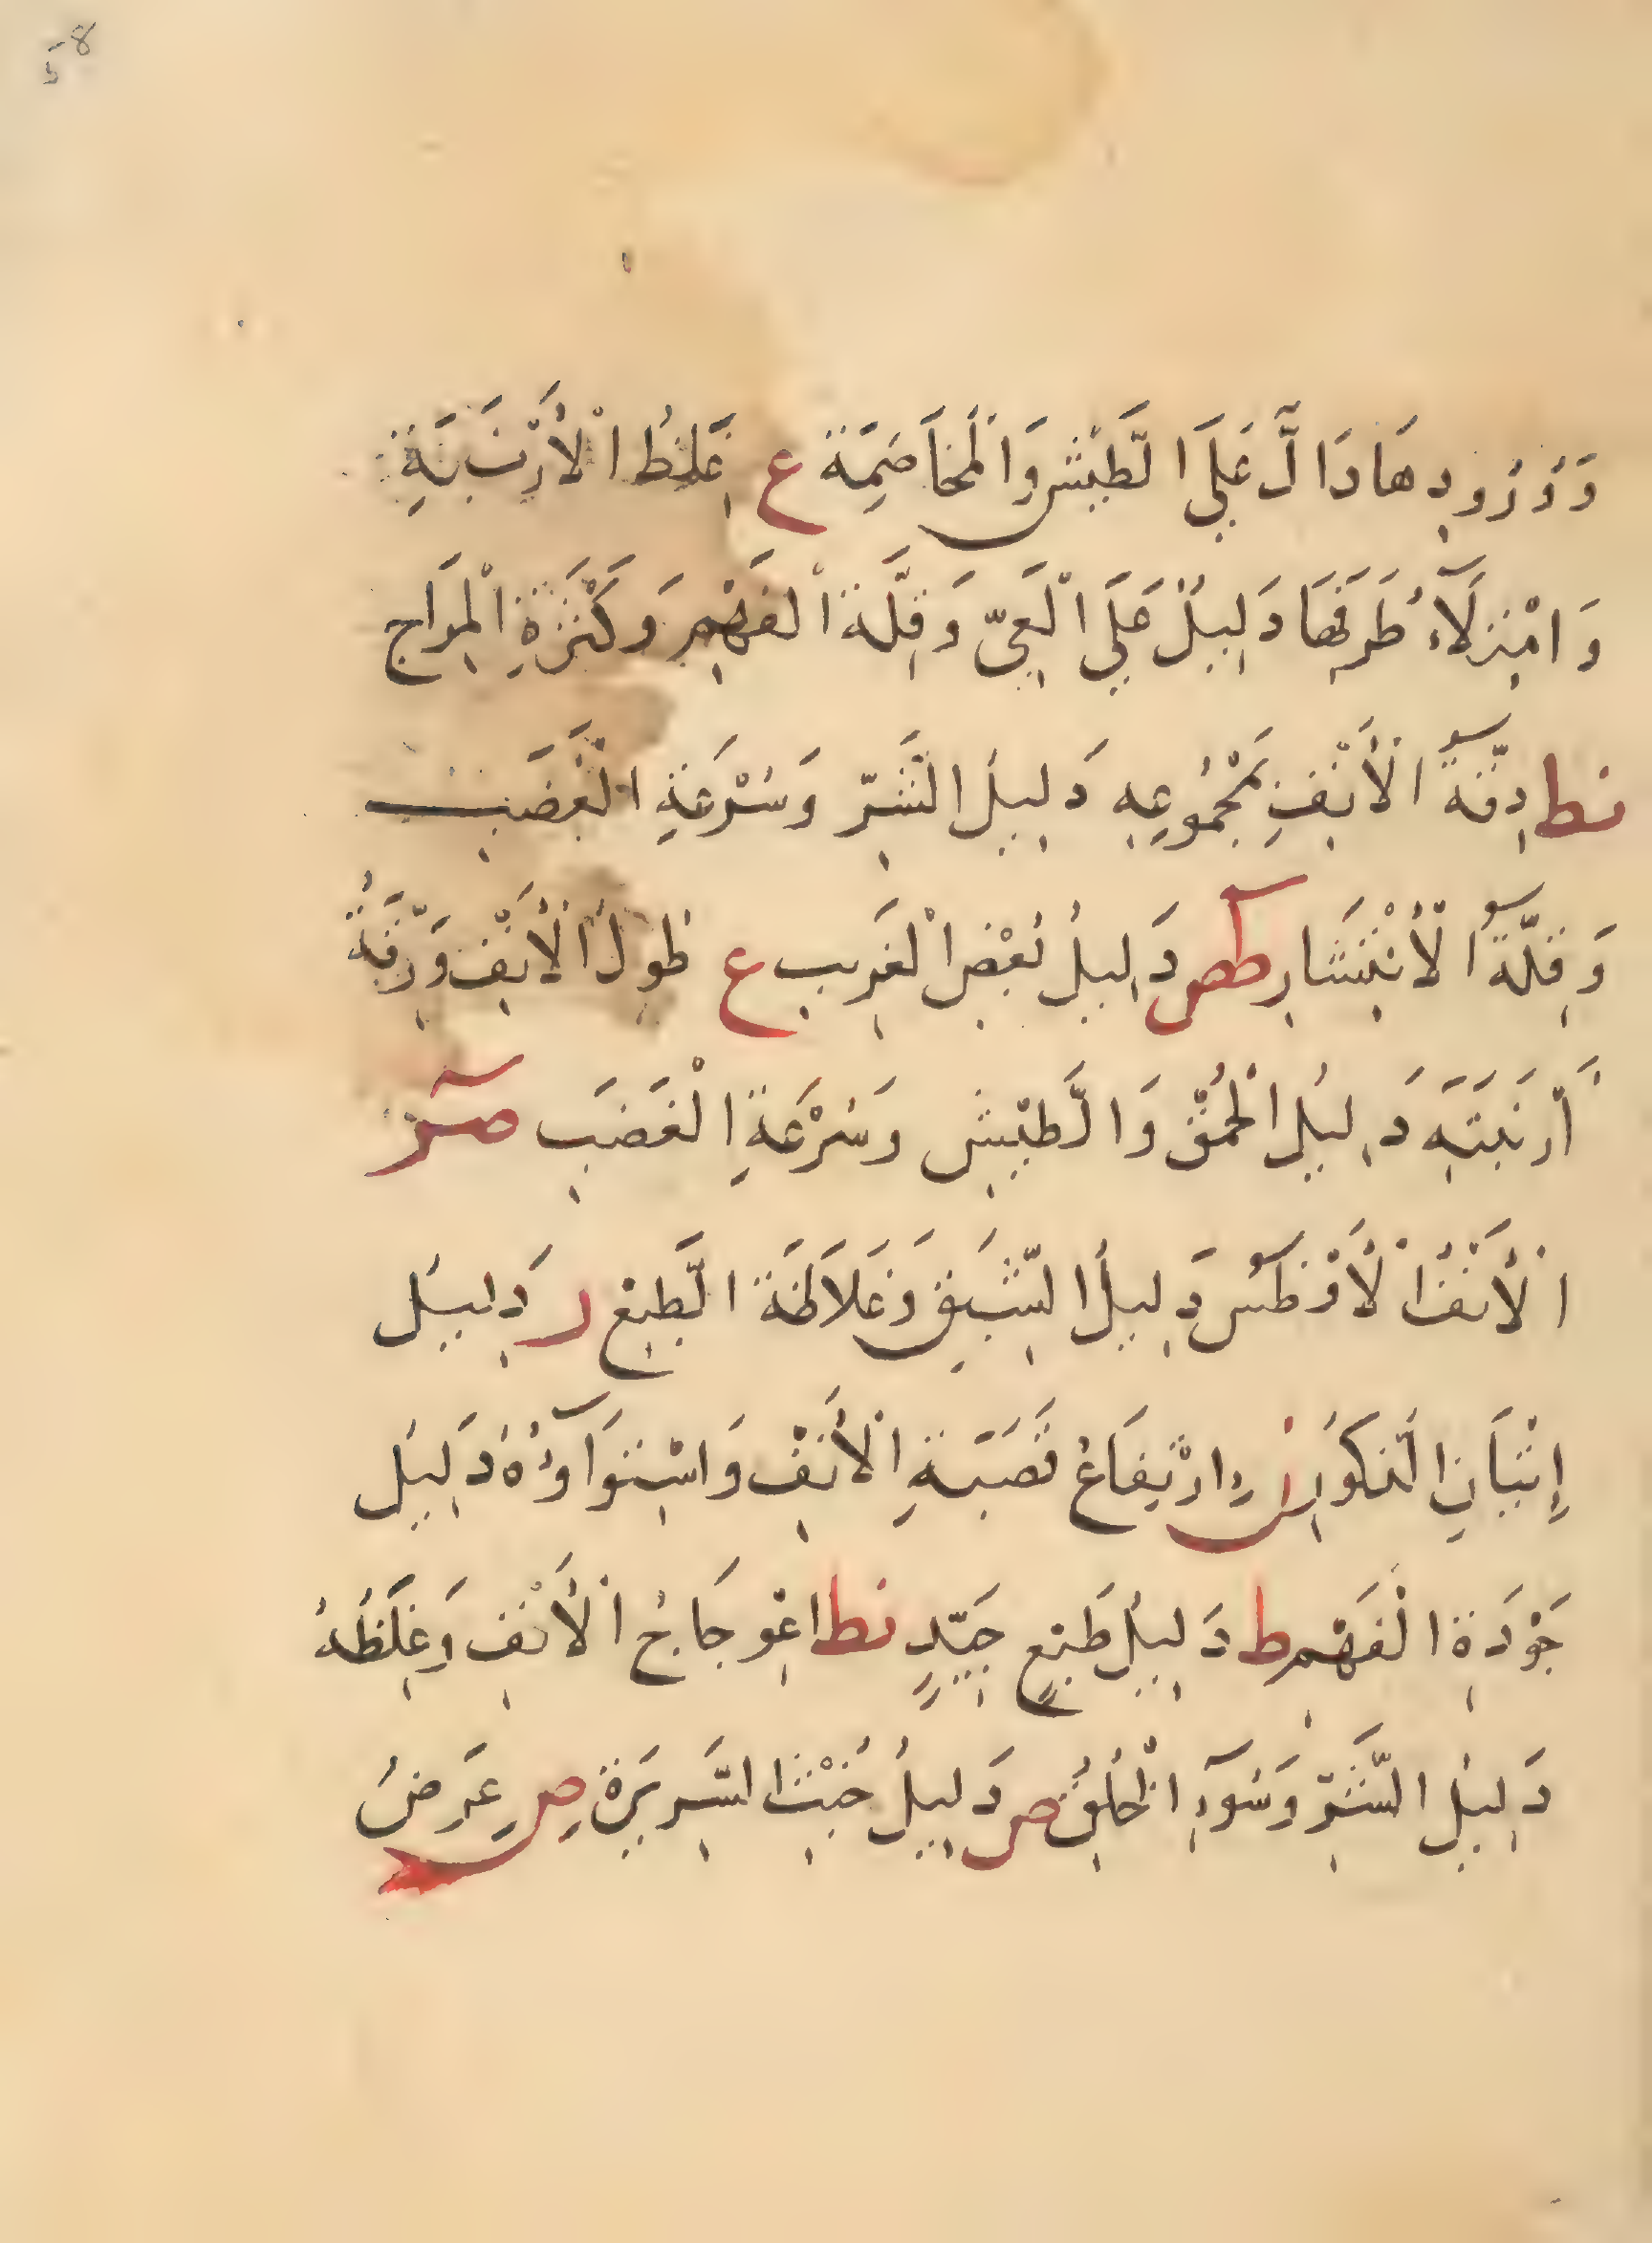 58
وَوُرُودِهَا دَالَّ عَلَى الطَّيْشِ وَالْمُخَاصَمَةِ ع غِلَظُ الْأَرْنَبَةِ
وَامْتِلَآءُ طَرَفِهَا دَلِيلٌ عَلَى الْعِيِّ وَقِلَّةِ الْفَهْمِ وَكَثْرَةِ الْمِزَاجِ
نط دِقَّةُ الْأَنْفِ بِمَجْمُوعِهِ دَلِيلُ الشَّرِّ وَسُرْعَةِ الْغَضَبِ
وَقِلَّةُ الْأَنْتِشَارِ طص دَلِيلُ بُغْضِ الْغَرِيبِ ع طُولُ الْأَنْفِ وَرِقَّةُ
أَرْنَبَتِهِ دَلِيلُ الْحُمْقِ وَالطَّيْشِ وَسُرْعَةِ الْغَضَبِ صر
الْأَنْفُ الْأَفْطَسُ دَلِيلُ الشَّبَقِ وَغَلَاظَةِ الطَّبْعِ ر دَلِيلُ
إِتْيَانِ الذُّكُورِ ن ارْتِفَاعُ قَصَبَةِ الْأَنْفِ وَاسْتِوَآؤُهُ دَلِيلُ
جَوْدَةِ الْفَهْمِ ط دَلِيلُ طَبْعٍ جَيِّدٍ نط اعْوِجَاجُ الْأَنْفِ وَغِلَظُهُ
دَلِيلُ الشَّرِّ وَسُوٓءِ الْخُلُقِ ص دَلِيلُ خُبْثِ السَّرِيرَةِ ص عَرَضُ